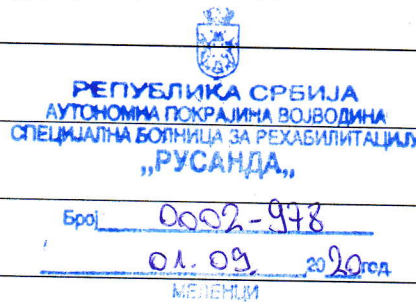 РЕПУБЛИКА СРБИЈА
АУТОНОМНА ПОКРАЈИНА ВОЈВОДИНА
СПЕЦИЈАЛНА БОЛНИЦА ЗА РЕХАБИЛИТАЦИЈУ
„РУСАНДА„
Број 0002-978
01.09. 2020 год
МЕЛЕНЦИ